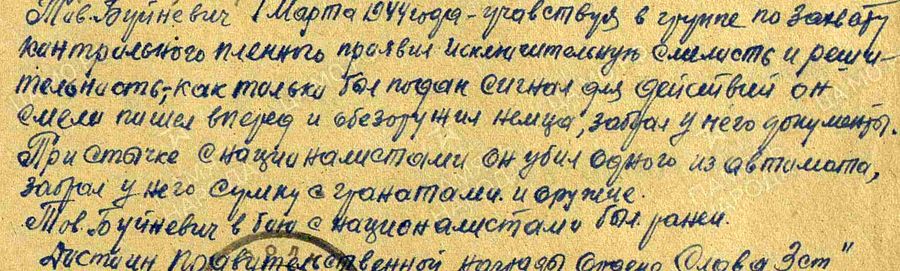 Тов. Буйневич 1 Марта 1944 года - учавствуя в группе по захвату
контрольного пленного праявил исключительную смеласть и реши-
тельнасть, - как только был подан сигнал для действий он
смело пошел вперед и обезоружил немца, забрал у него документы.
При стычке с националистами он убил одного из автомата,
забрал у него сумку с гранатами и оружие.
Тов. Буйневич в бою с националистами был ранен.
Достоин правительственной награды ордена Слава 3 ст"